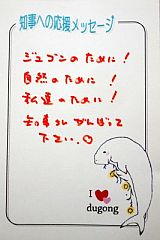 知事への応援メッセージ
ジュゴンのために!
自然のために!
私達のために!
知事さんがんばって
下さい。
I ❤
dugong